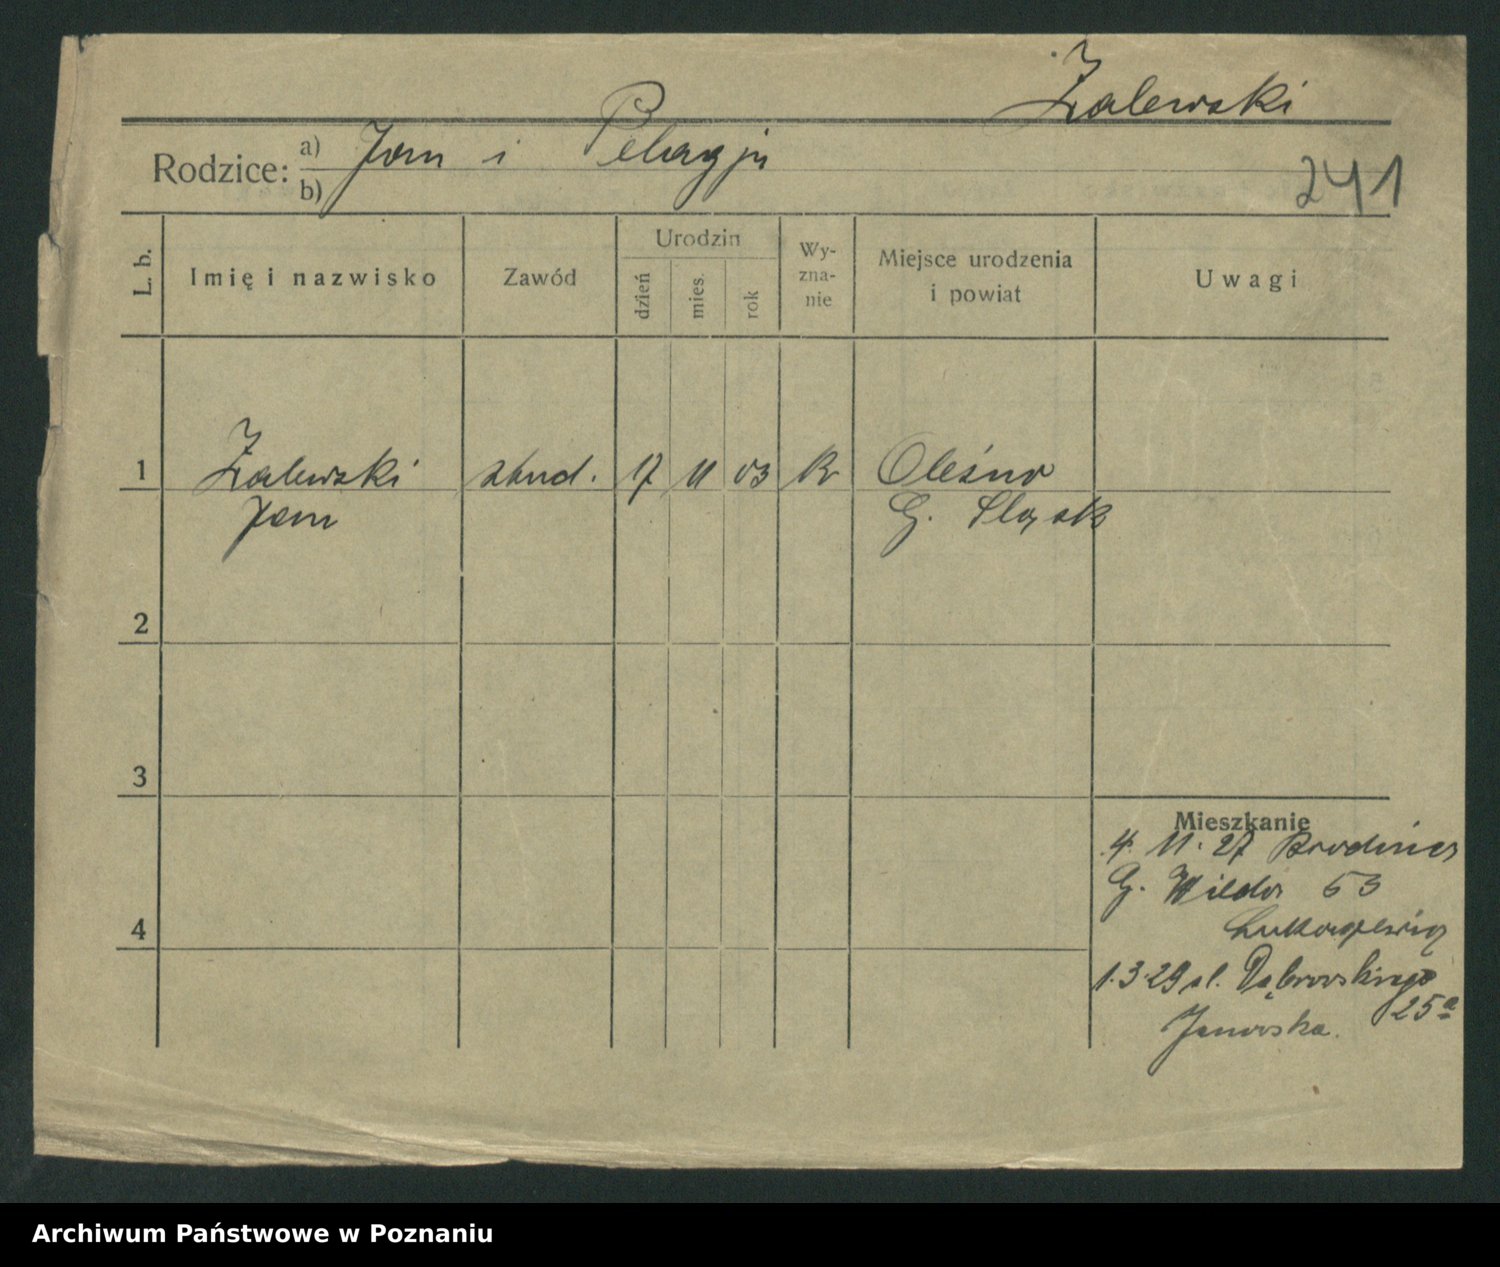 Żalewski
Rodzice: a) Jan i Pelagja
b)
241
L. b.
Imię i nazwisko
Zawód
Urodzin
dzień
mies.
rok
Wy-
zna-
nie
Miejsce urodzenia
i powiat
Uwagi
1 Żalewski stud. 17 11 03 Oleśno
Jan G. Śląsk
2
3
Mieszkanie
4. 11. 27 Brodnica
G. Wilda 53
4
1.3.29 ul. Dąbrowskiego
25a
Janowska.
Archiwum Państwowe w Poznaniu